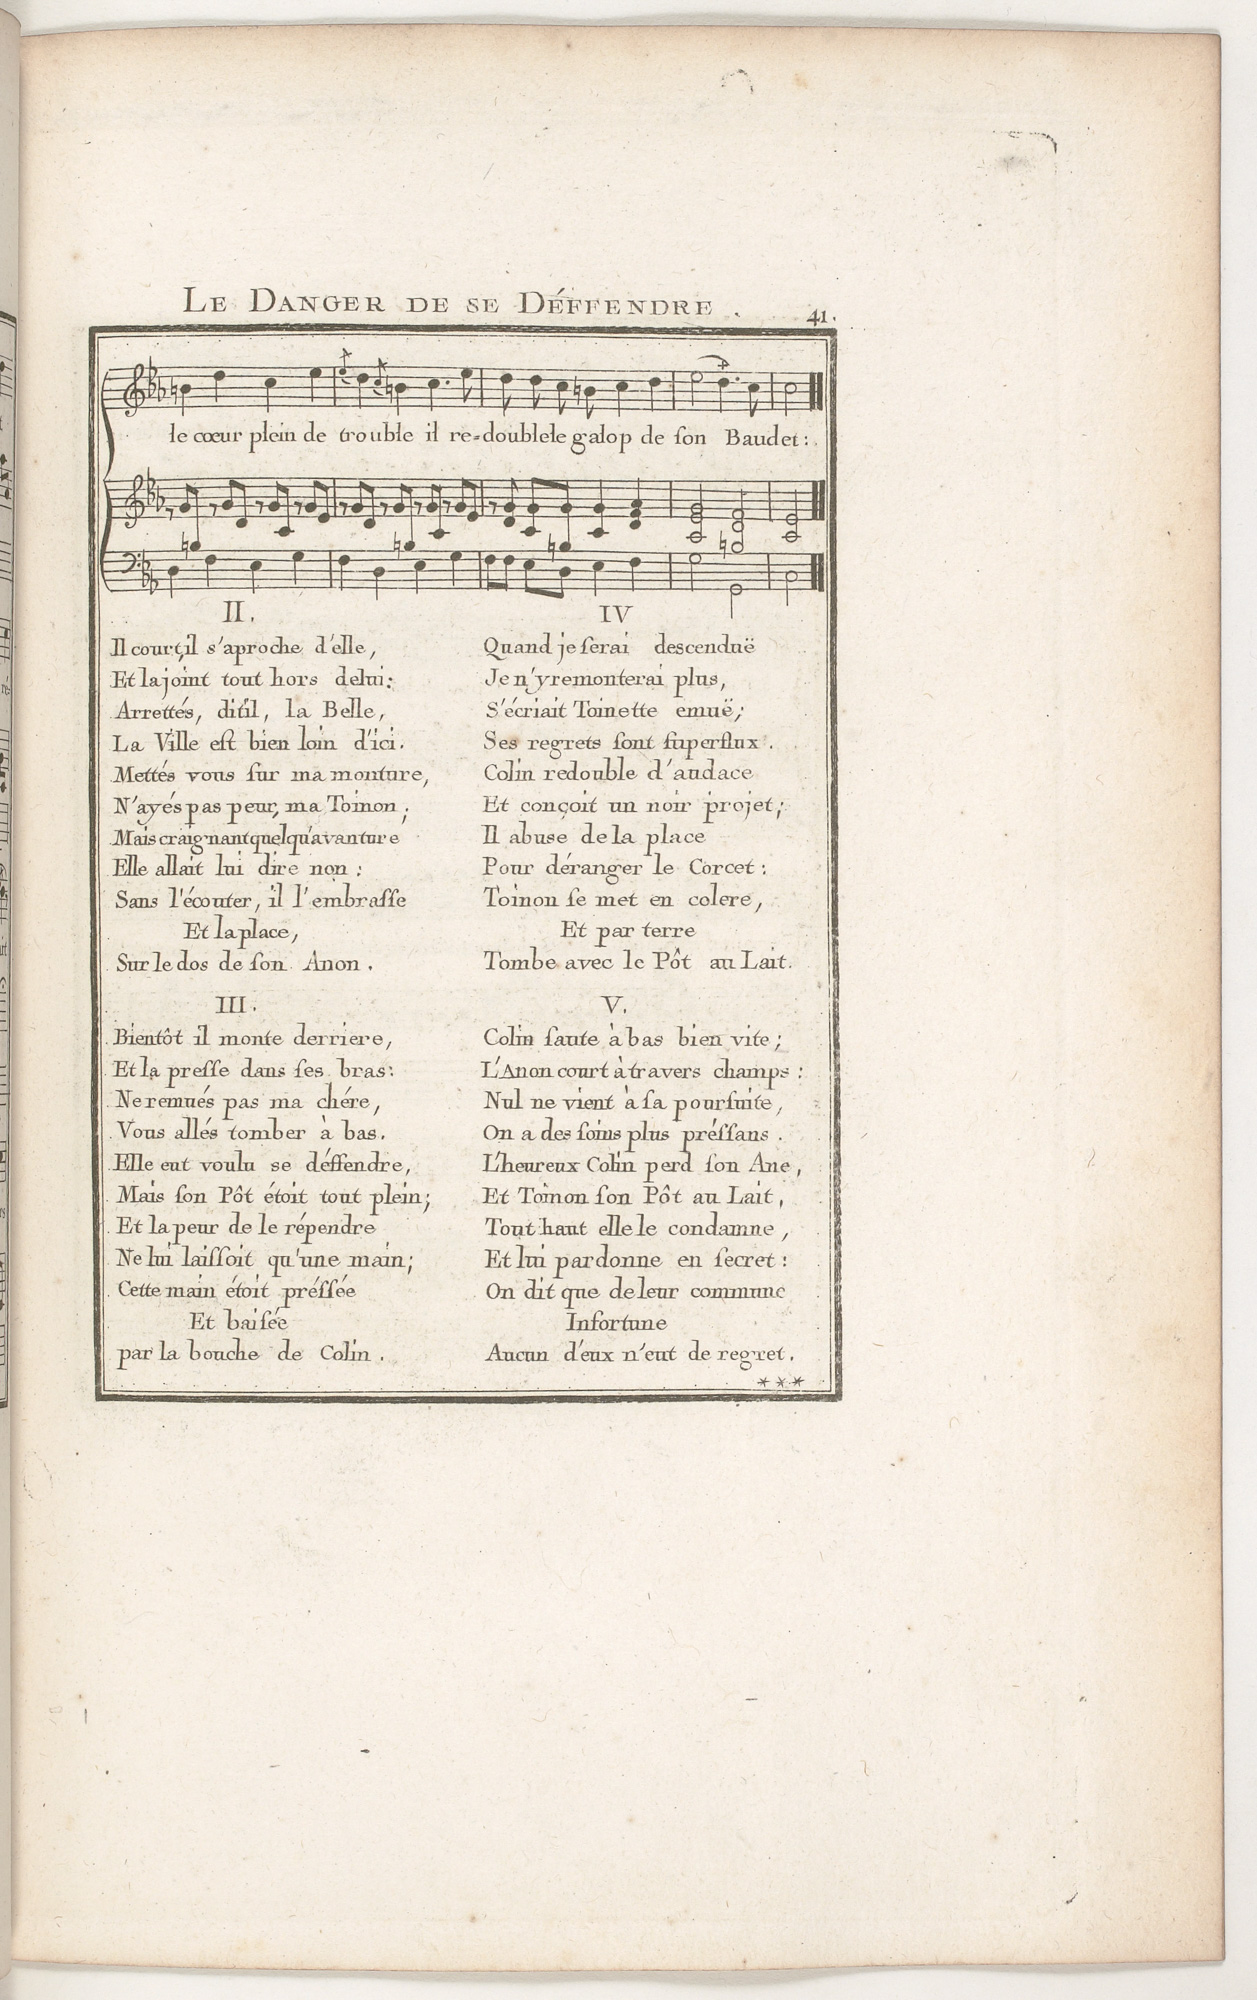 LE DANGER DE SE DÉFFENDRE.
41.
le cœur plein de trouble il re=double le galop de ſon Baudet:
II.
Il court, il s'aproche d'elle,
Et la joint tout hors de lui:
Arrettés, dit il, la Belle,
La Ville eſt bien loin d'ici.
Mettés vous ſur ma monture,
N'ayés pas peur, ma Toinon;
Mais craignant quelqu'avanture
Elle allait lui dire non:
Sans l'écouter, il l'embraſſe
Et la place,
Sur le dos de ſon Anon.
III.
Bientôt il monte derriere,
Et la preſſe dans ſes bras:
Ne remués pas ma chére,
Vous allés tomber à bas.
Elle eut voulu se déffendre,
Mais ſon Pôt étoit tout plein;
Et la peur de le répendre
Ne lui laiſſoit qu'une main;
Cette main étoit préſſée
Et baiſée
par la bouche de Colin.
IV
Quand je ſerai descenduë
Je n'y remonterai plus,
S'écriait Toinette emuë;
Ses regrets ſont ſuperflux.
Colin redouble d'audace
Et conçoit un noir projet;
Il abuse de la place
Pour déranger le Corcet:
Toinon ſe met en colere,
Et par terre
Tombe avec le Pôt au Lait.
V.
Colin ſaute à bas bien vite;
L'Anon court à travers champs:
Nul ne vient à ſa pourſuite,
On a des ſoins plus préſſans.
L'heureux Colin perd ſon Ane,
Et Toinon ſon Pôt au Lait,
Tout haut elle le condamne,
Et lui pardonne en ſecret:
On dit que de leur commune
Infortune
Aucun d'eux n'eut de regret.
***